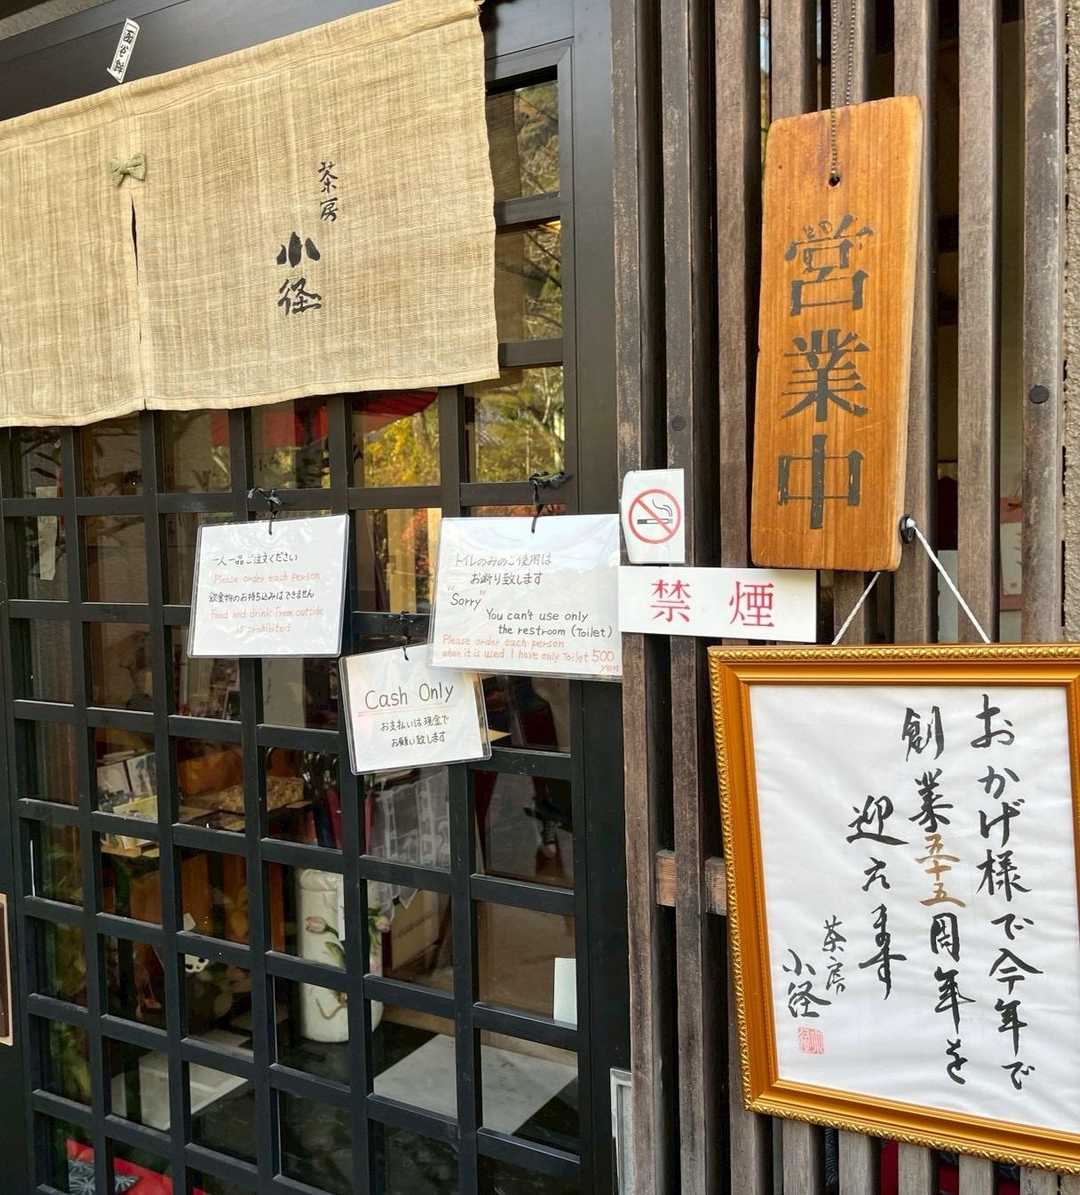 茶房
小径
営業中
一人一品ご注文ください
Please order each person
飲食物のお持ち込みはできません
Food and drink from outside
is prohibited
トイレのみのご使用は
お断り致します
"Sorry"
You can't use only
the restroom (Toilet)
Please order each person
when it is used I have only Toilet 500
Cash Only
お支払いは現金で
お願い致します
禁煙
おかげ様で今年で
創業五十五周年を
迎えます
茶房
小径